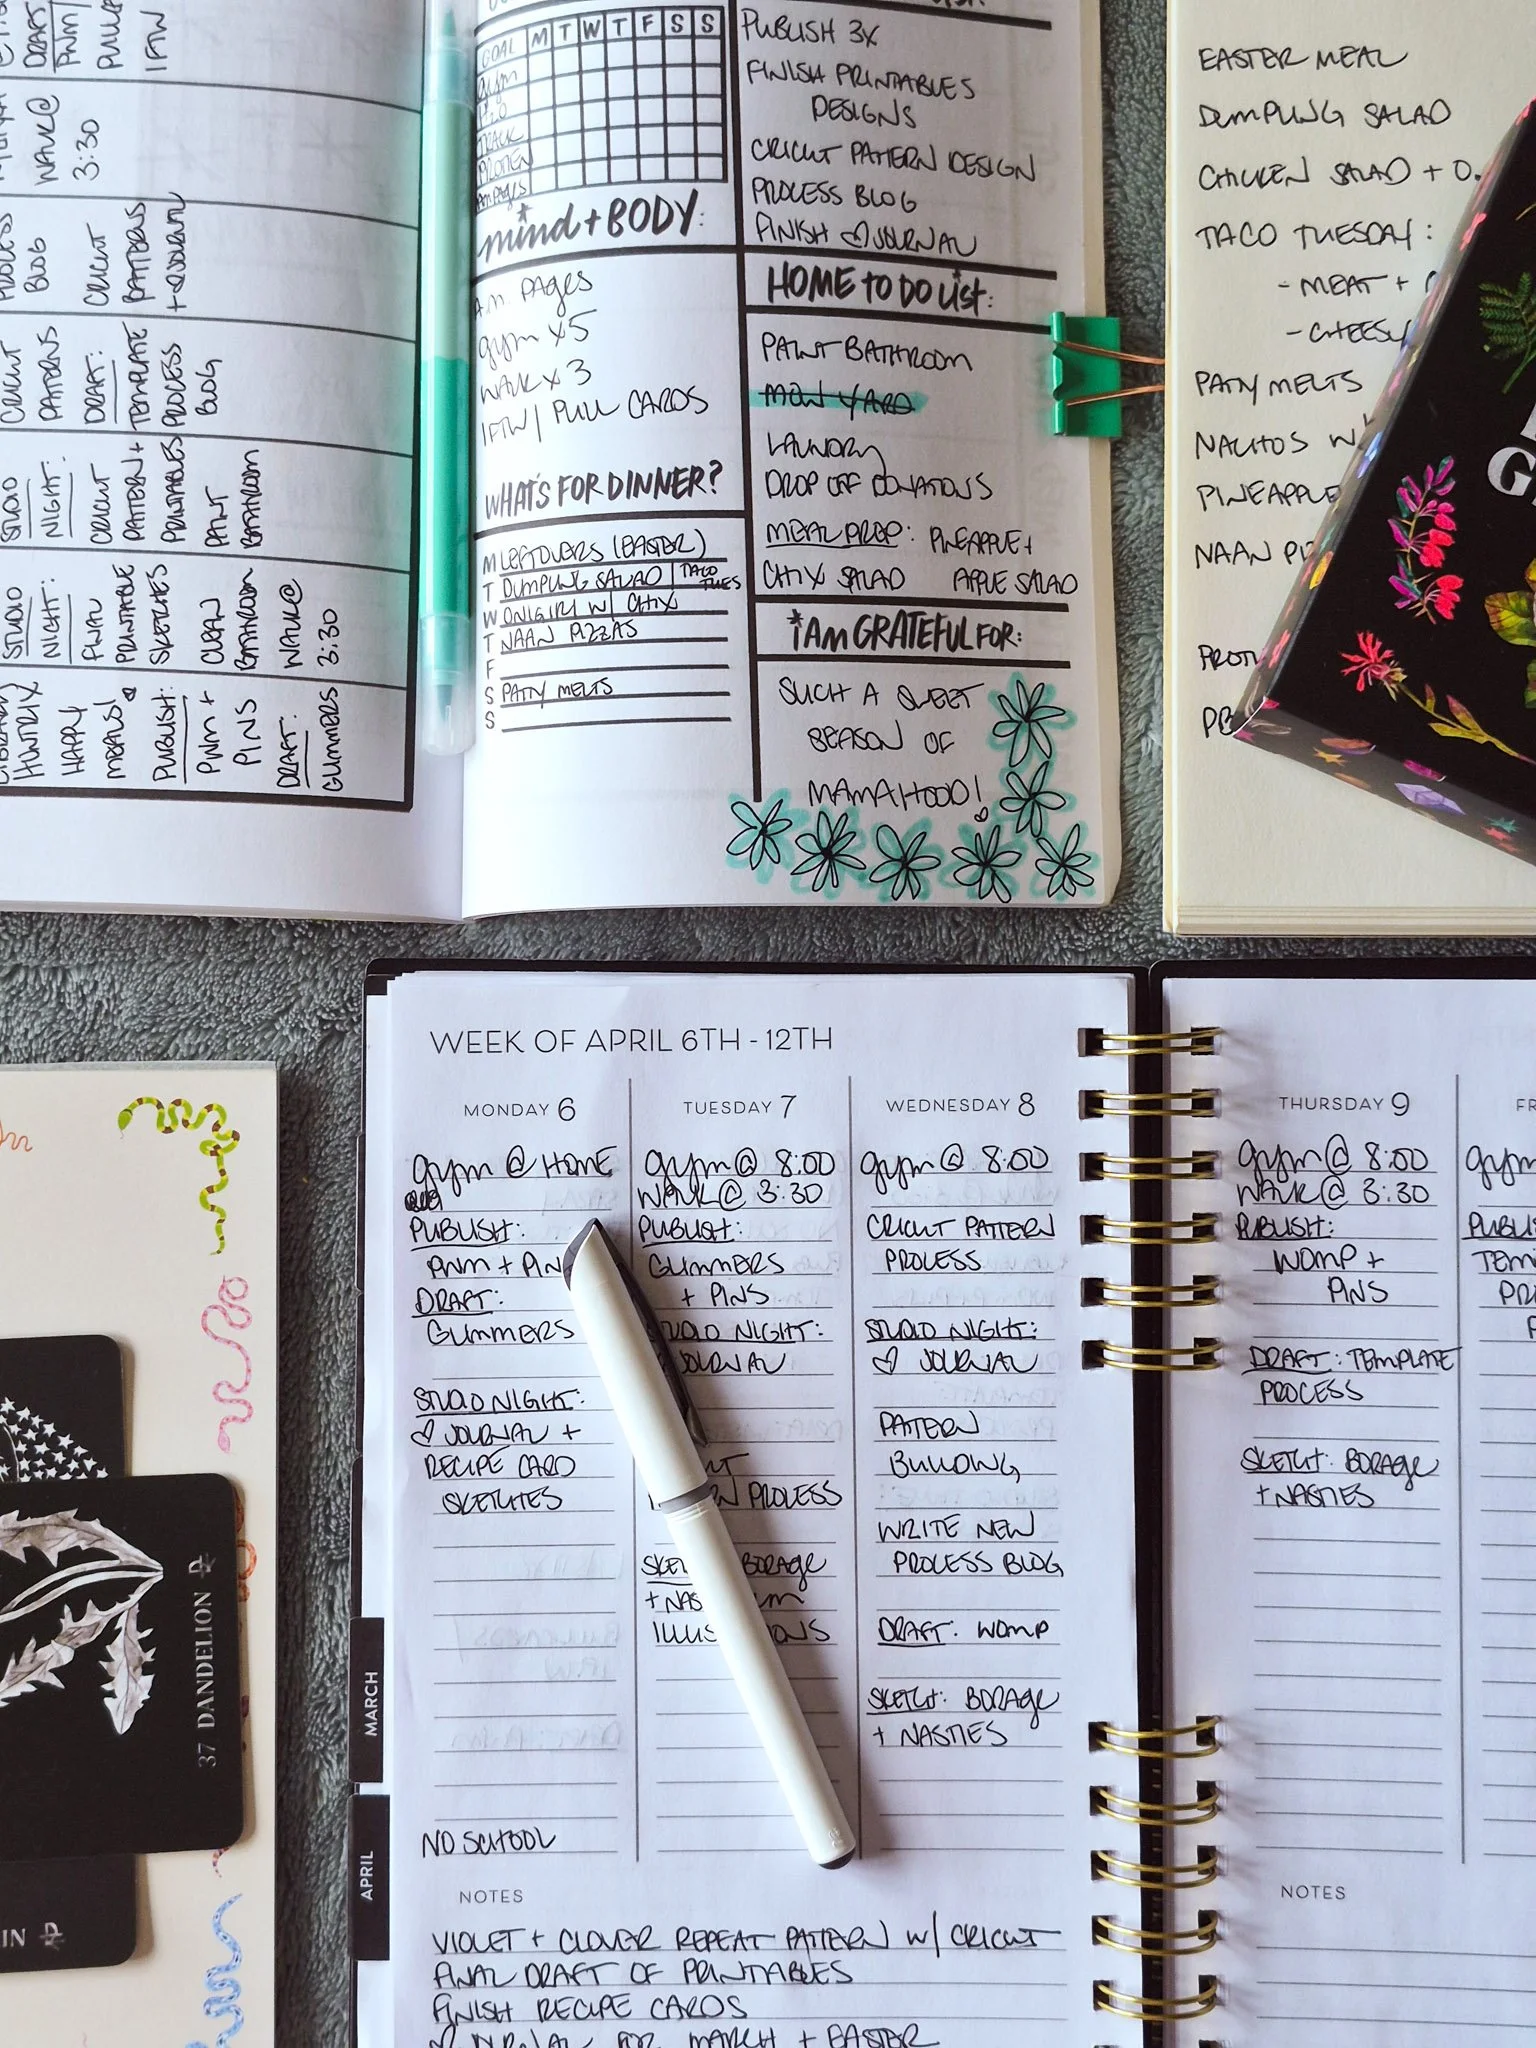 DRAFT:
PWM/
PULL
IFTW
WALK@
3:30
BLOG
CRICUT
PATTERNS
+ JOURNAL
CRICUT
PATTERNS
DRAFT:
TEMPLATE
PROCESS
BLOG
STUDIO
NIGHT:
CRICUT
PATTERN +
PRINTABLES
PAINT
BATHROOM
STUDIO
NIGHT:
FINAL
PRINTABLE
SKETCHES
CLEAN
BATHROOM
WALK@
3:30
LIBRARY
HUNTRIX
HAPPY
MEALS!
PUBLISH:
PWM +
PINS
DRAFT:
GLIMMERS
GOAL M T W T F S S
gym
H2O
WALK
PROTEIN
AM PAGES
mind + BODY:
A.M. PAGES
gym x5
WALK x 3
IFTW / PULL CARDS
WHAT'S FOR DINNER?
M LEFTOVERS (EASTER)
T DUMPLING SALAD | TACO TUES
W ONIGIRI W/ CHIX
T NAAN PIZZAS
F
S PATTY MELTS
S
PUBLISH 3X
FINISH PRINTABLES
DESIGNS
CRICUT PATTERN DESIGN
PROCESS BLOG
FINISH ♡ JOURNAL
HOME TO DO LIST:
PAINT BATHROOM
MOW YARD
LAUNDRY
DROP OFF DONATIONS
MEAL PREP: PINEAPPLE +
CHIX SALAD APPLE SALAD
*I AM GRATEFUL FOR:
SUCH A SWEET
SEASON OF
MAMAHOOD!
EASTER MEAL
DUMPLING SALAD
CHICKEN SALAD + O.
TACO TUESDAY:
- MEAT +
PATTY MELTS
NACHOS W/
PINEAPPLE
NAAN
WEEK OF APRIL 6TH - 12TH
MONDAY 6
gym @ HOME
PUBLISH:
PWM + PIN
DRAFT:
GLIMMERS
STUDIO NIGHT:
♡ JOURNAL +
RECIPE CARD
SKETCHES
NO SCHOOL
TUESDAY 7
gym @ 8:00
WALK @ 3:30
PUBLISH:
GLIMMERS
+ PINS
STUDIO NIGHT:
JOURNAL
PROCESS
BORAGE
WEDNESDAY 8
gym @ 8:00
CRICUT PATTERN
PROCESS
STUDIO NIGHT:
♡ JOURNAL
PATTERN
BUILDING
WRITE NEW
PROCESS BLOG
DRAFT: WOMP
SKETCH: BORAGE
+ NASTIES
THURSDAY 9
gym @ 8:00
WALK @ 3:30
PUBLISH:
WOMP +
PINS
DRAFT: TEMPLATE
PROCESS
SKETCH: BORAGE
+ NASTIES
FR
gym
NOTES
VIOLET + CLOVER REPEAT PATTERN W/ CRICUT
FINAL DRAFT OF PRINTABLES
FINISH RECIPE CARDS
♡ JOURNAL FOR MARCH + EASTER
NOTES
MARCH
APRIL
37 DANDELION